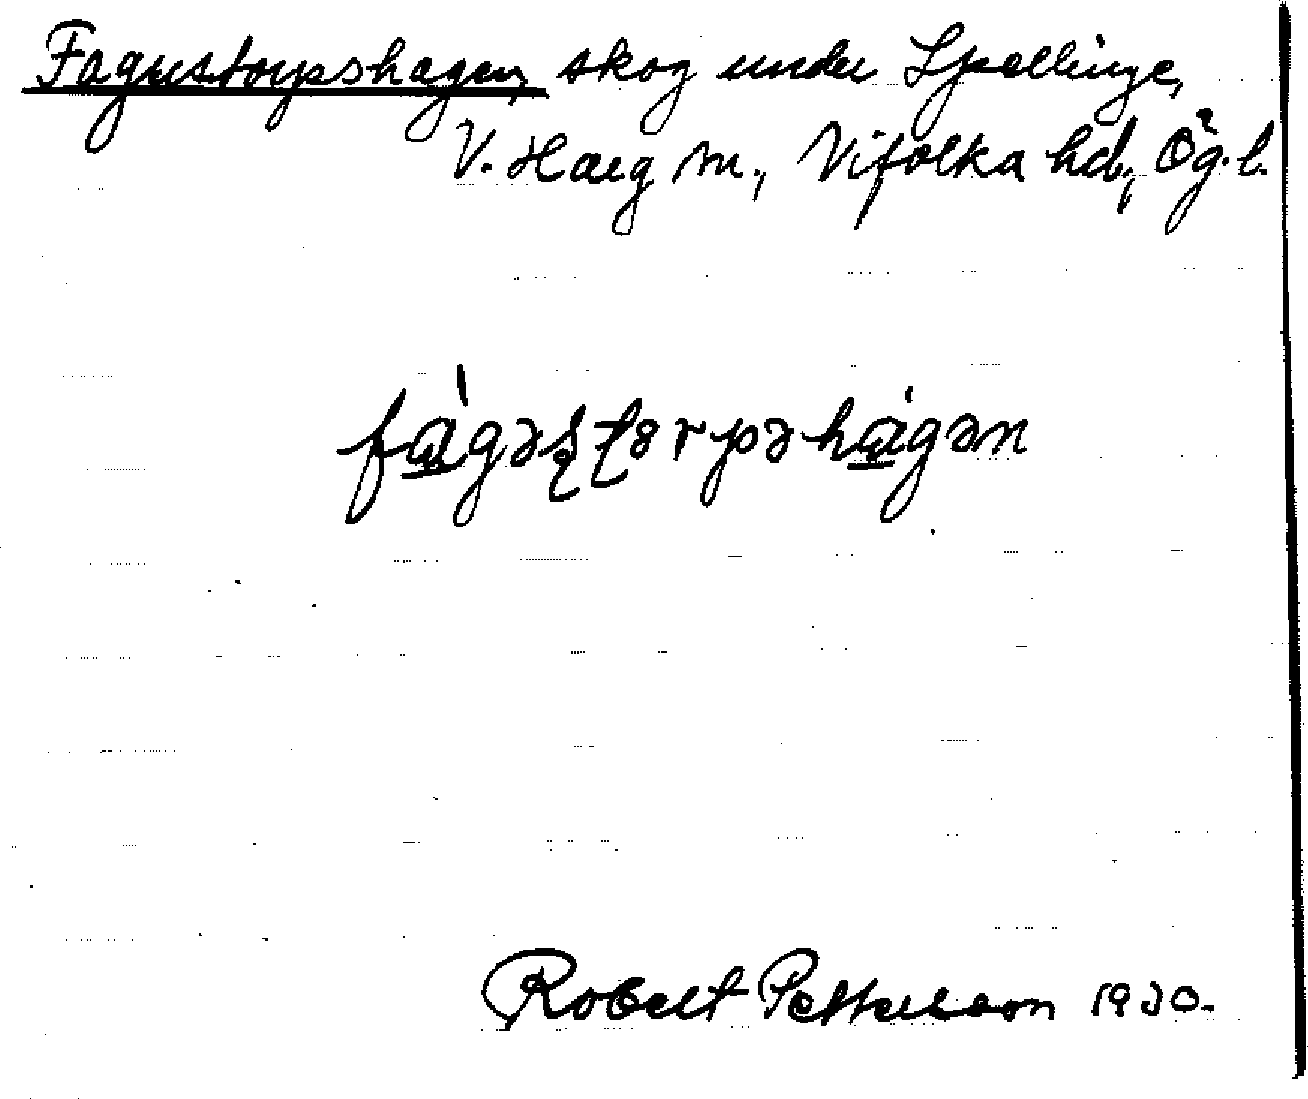 Fagerstorpshagen, skog under Spellinge,
V. Harg sn., Vifolka hd., Ög. l.
fàgəʂʈɵrpəhágən
Robert Pettersson 1930.